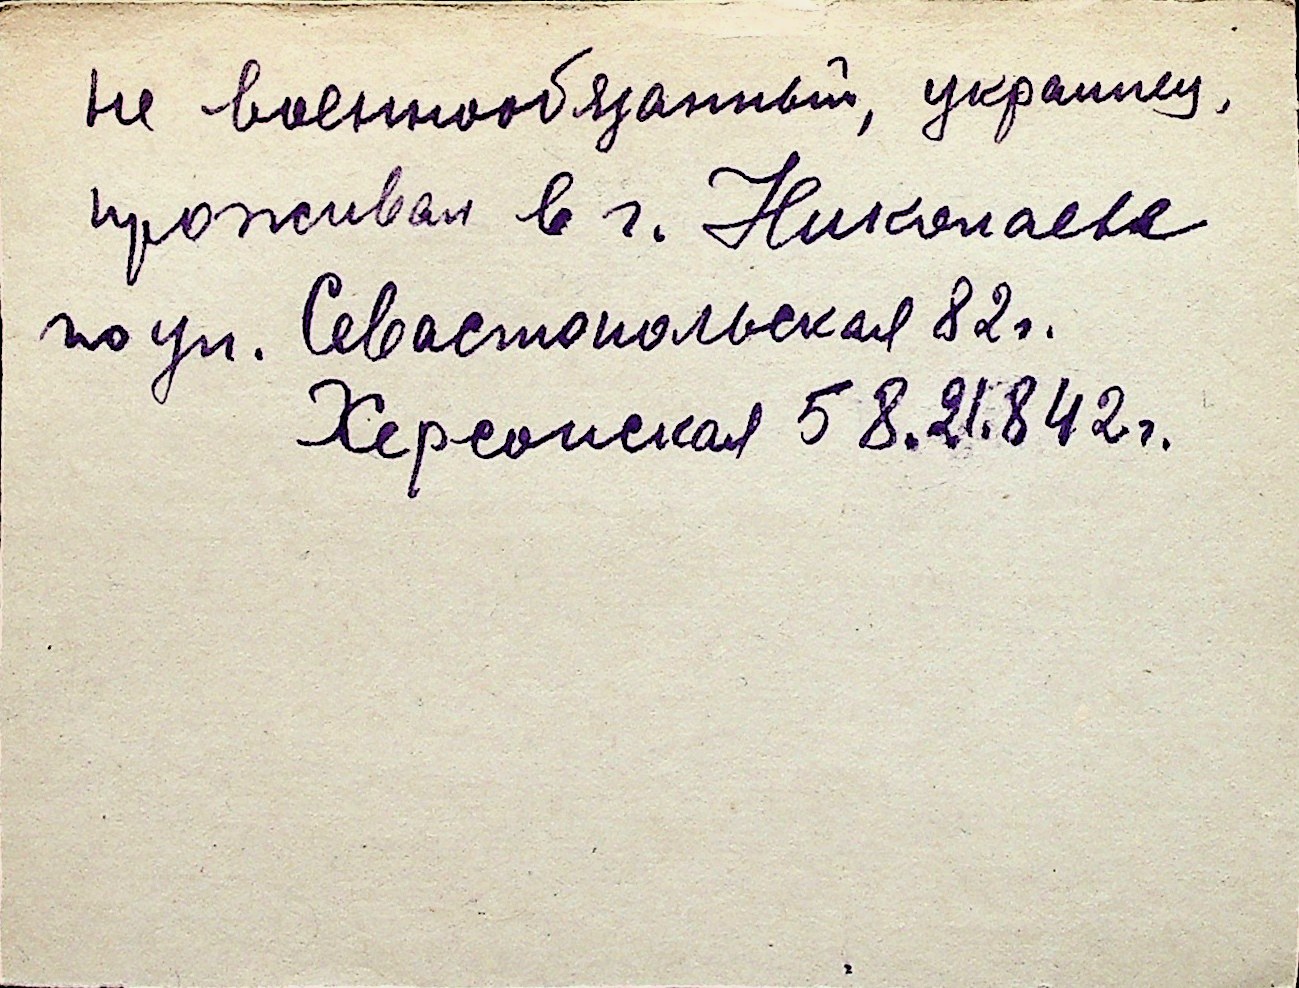 не военнообязанный, украинец,
проживал в г. Николаеве
по ул. Севастопольская 82 г.
Херсонская 5 8.21.842 г.